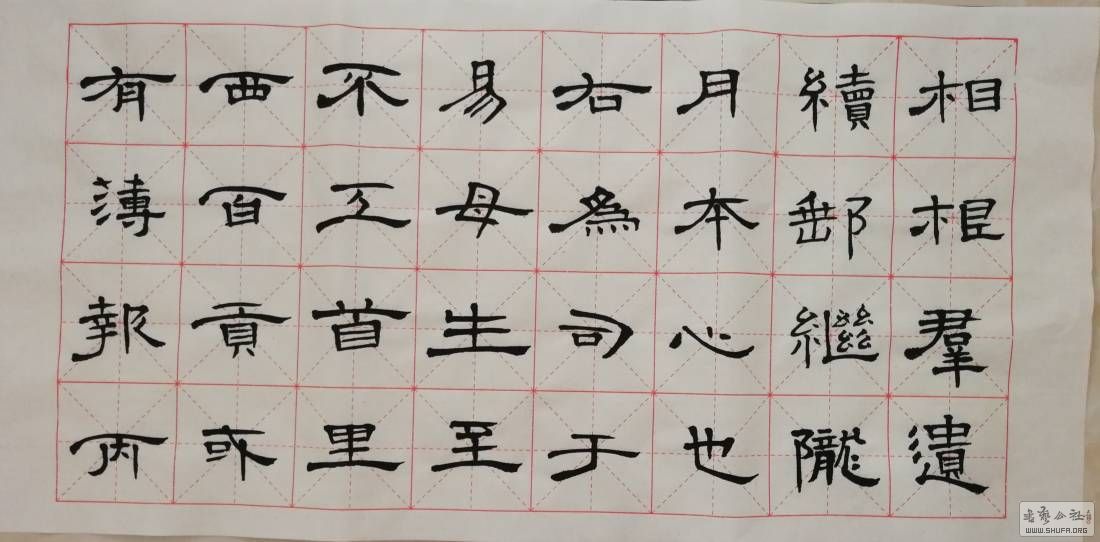 相根羣遺
續郵繼隴
月本心也
右為司于
易母生至
不首里
西百貢或
有薄報丙
书艺公社
WWW.SHUFA.ORG